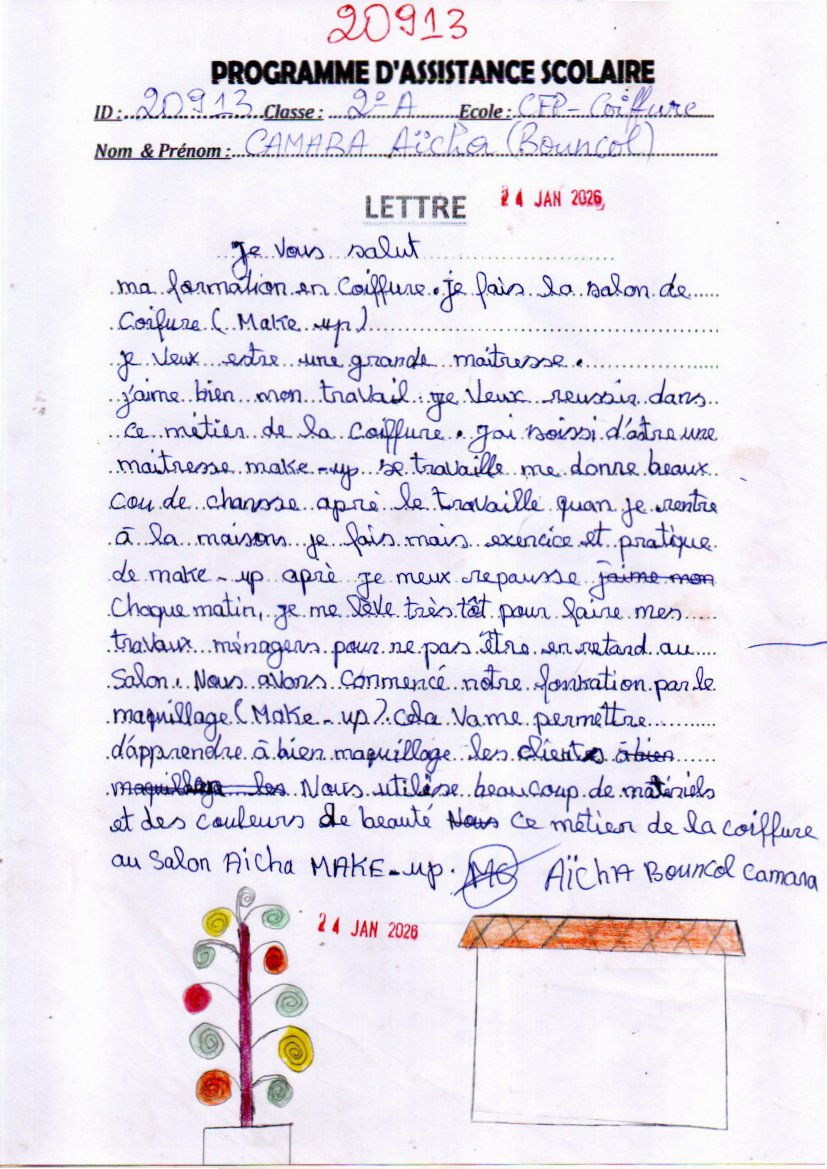 20913
PROGRAMME D'ASSISTANCE SCOLAIRE
ID : 20913 Classe : 2º A Ecole : CFP-Coiffure
Nom & Prénom : CAMARA Aïcha (Bouncol)
LETTRE 24 JAN 2026
Je vous salut
ma formation en Coiffure. je fais la salon de
Coifure ( Make up)
je veux estre une grande maîtresse.
j'aime bien mon travail je veux reussir dans
ce métier de la Coiffure. J'ai soissi d'astre une
maitresse make-up se travaille me donne beaux
cou de chansse aprè le travaille quan je rentre
à la maisons je fais mais exercice et pratique
de make-up aprè je meux repausse j'aime mon
Chaque matin, je me lève très tôt pour faire mes
travaux ménagers pour ne pas être en retard au
Salon. Nous avons commencé notre formation par le
maquillage (Make-up). cela va me permettre
d'apprendre à bien maquillage les clients à bien
maquillage les Nous utilise beaucoup de matériels
et des couleurs de beauté Nous ce métier de la coiffure
au salon Aicha MAKE-up. Aïcha Bouncol camara
24 JAN 2026